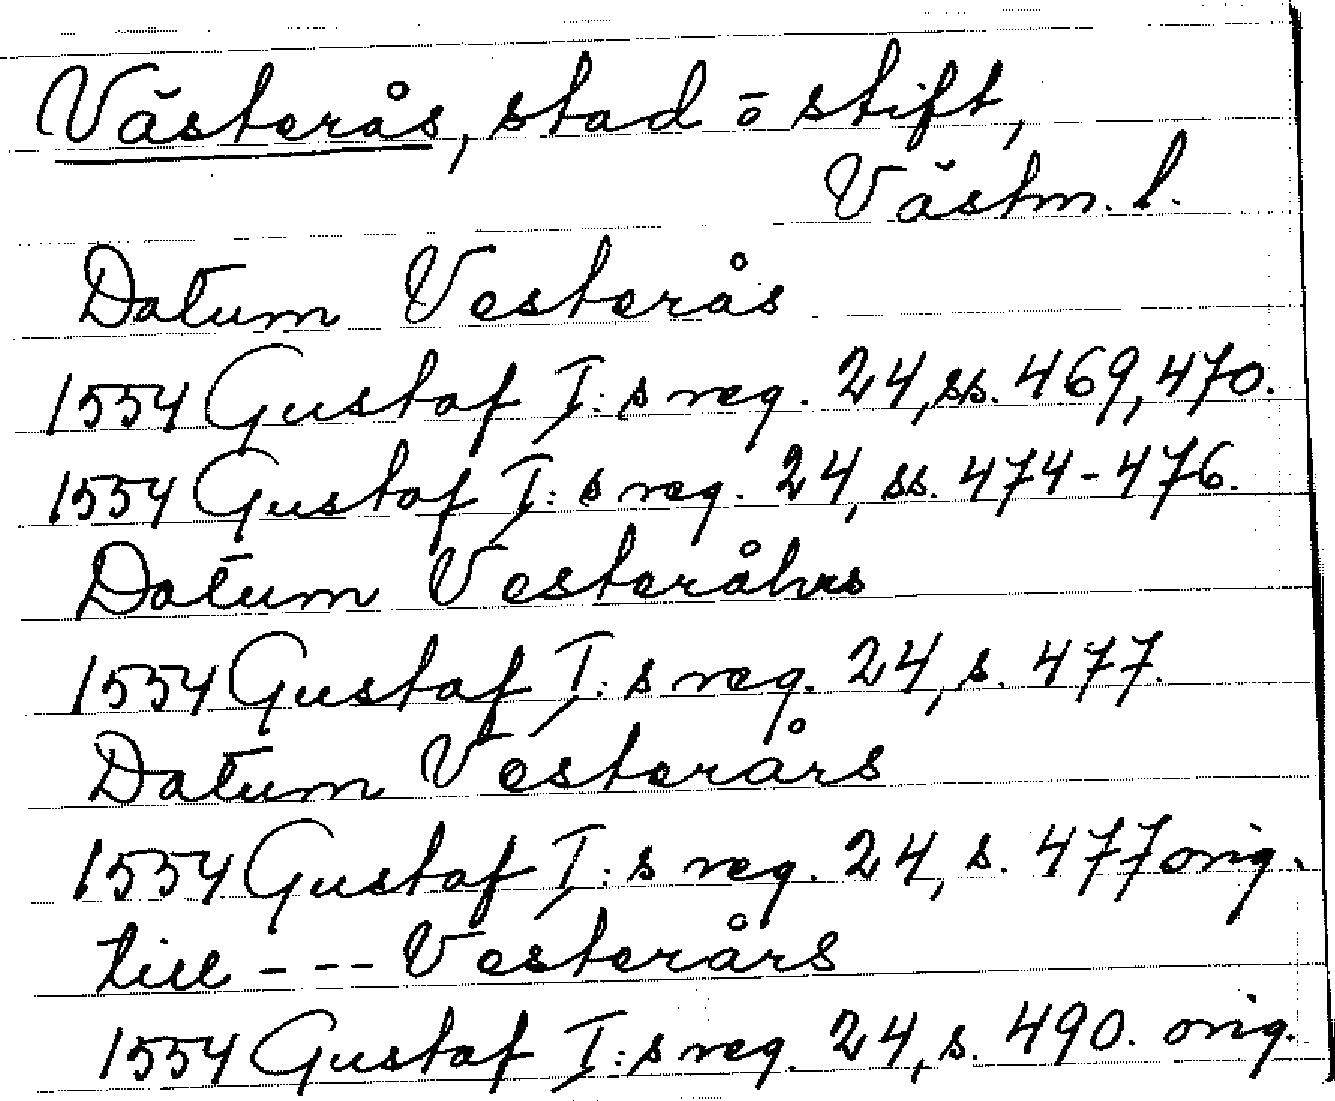 Västerås, stad ō stift,
Västm. l.
Datum Vesterås
1554 Gustaf I:s reg. 24, ss. 469, 470.
1554 Gustaf I:s reg. 24, ss. 474-476.
Datum Vesteråhrs
1554 Gustaf I:s reg. 24, s. 477.
Datum Vesterårs
1554 Gustaf I:s reg. 24, s. 477 orig.
till --- Vesterårs
1554 Gustaf I:s reg. 24, s. 490. orig.